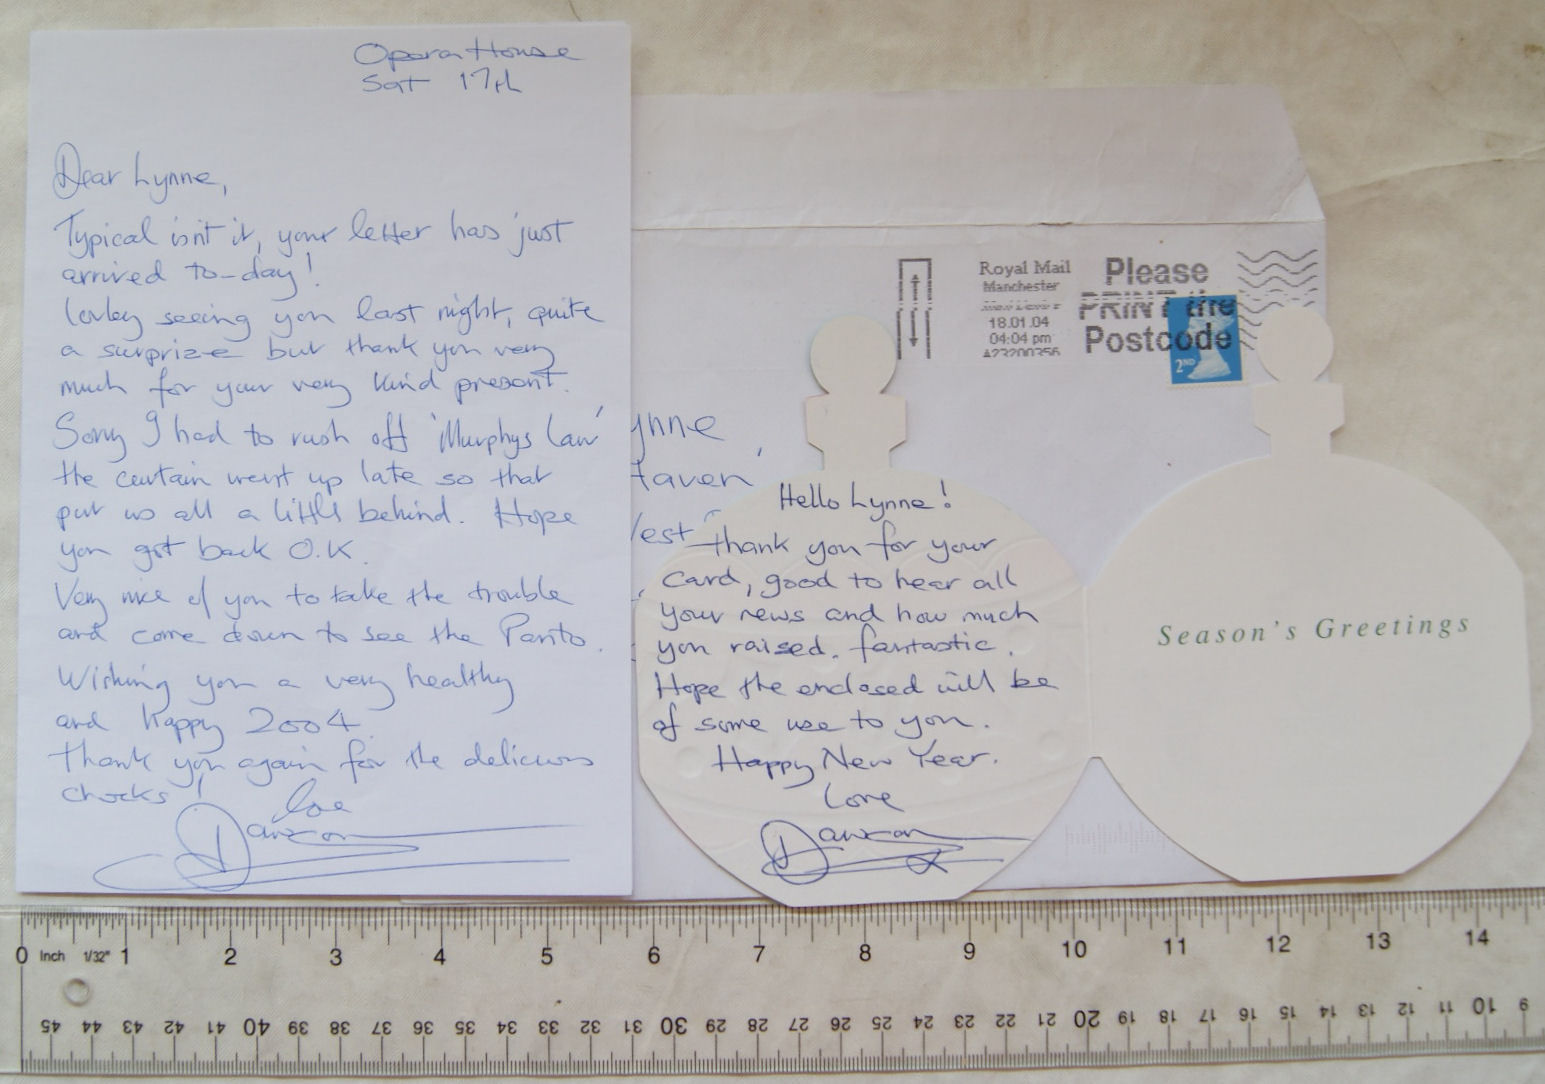 Opera House
Sat 17th
Dear Lynne,
Typical isnt it, your letter has just
arrived to-day!
Lovley seeing you last night, quite
a surprize but thank you very
much for your very kind present.
Sorry I had to rush off 'Murphys Law'
the curtain went up late so that
put us all a little behind. Hope
you got back O.K.
Very nice of you to take the trouble
and come down to see the Panto.
Wishing you a very healthy
and happy 2004.
Thank you again for the delicious
chocks!
love
Royal Mail
Manchester
18.01.04
04:04 pm
A23200356
Please
PRINT the
Postcode
2ND
ynne
Haven'
Vest
Hello Lynne!
Thank you for your
card, good to hear all
your news and how much
you raised. fantastic.
Hope the enclosed will be
of some use to you.
Happy New Year.
Love
Season's Greetings
0 Inch 1/32" 1 2 3 4 5 6 7 8 9 10 11 12 13 14
45 44 43 42 41 40 39 38 37 36 35 34 33 32 31 30 29 28 27 26 25 24 23 22 21 20 19 18 17 16 15 14 13 12 11 10 9